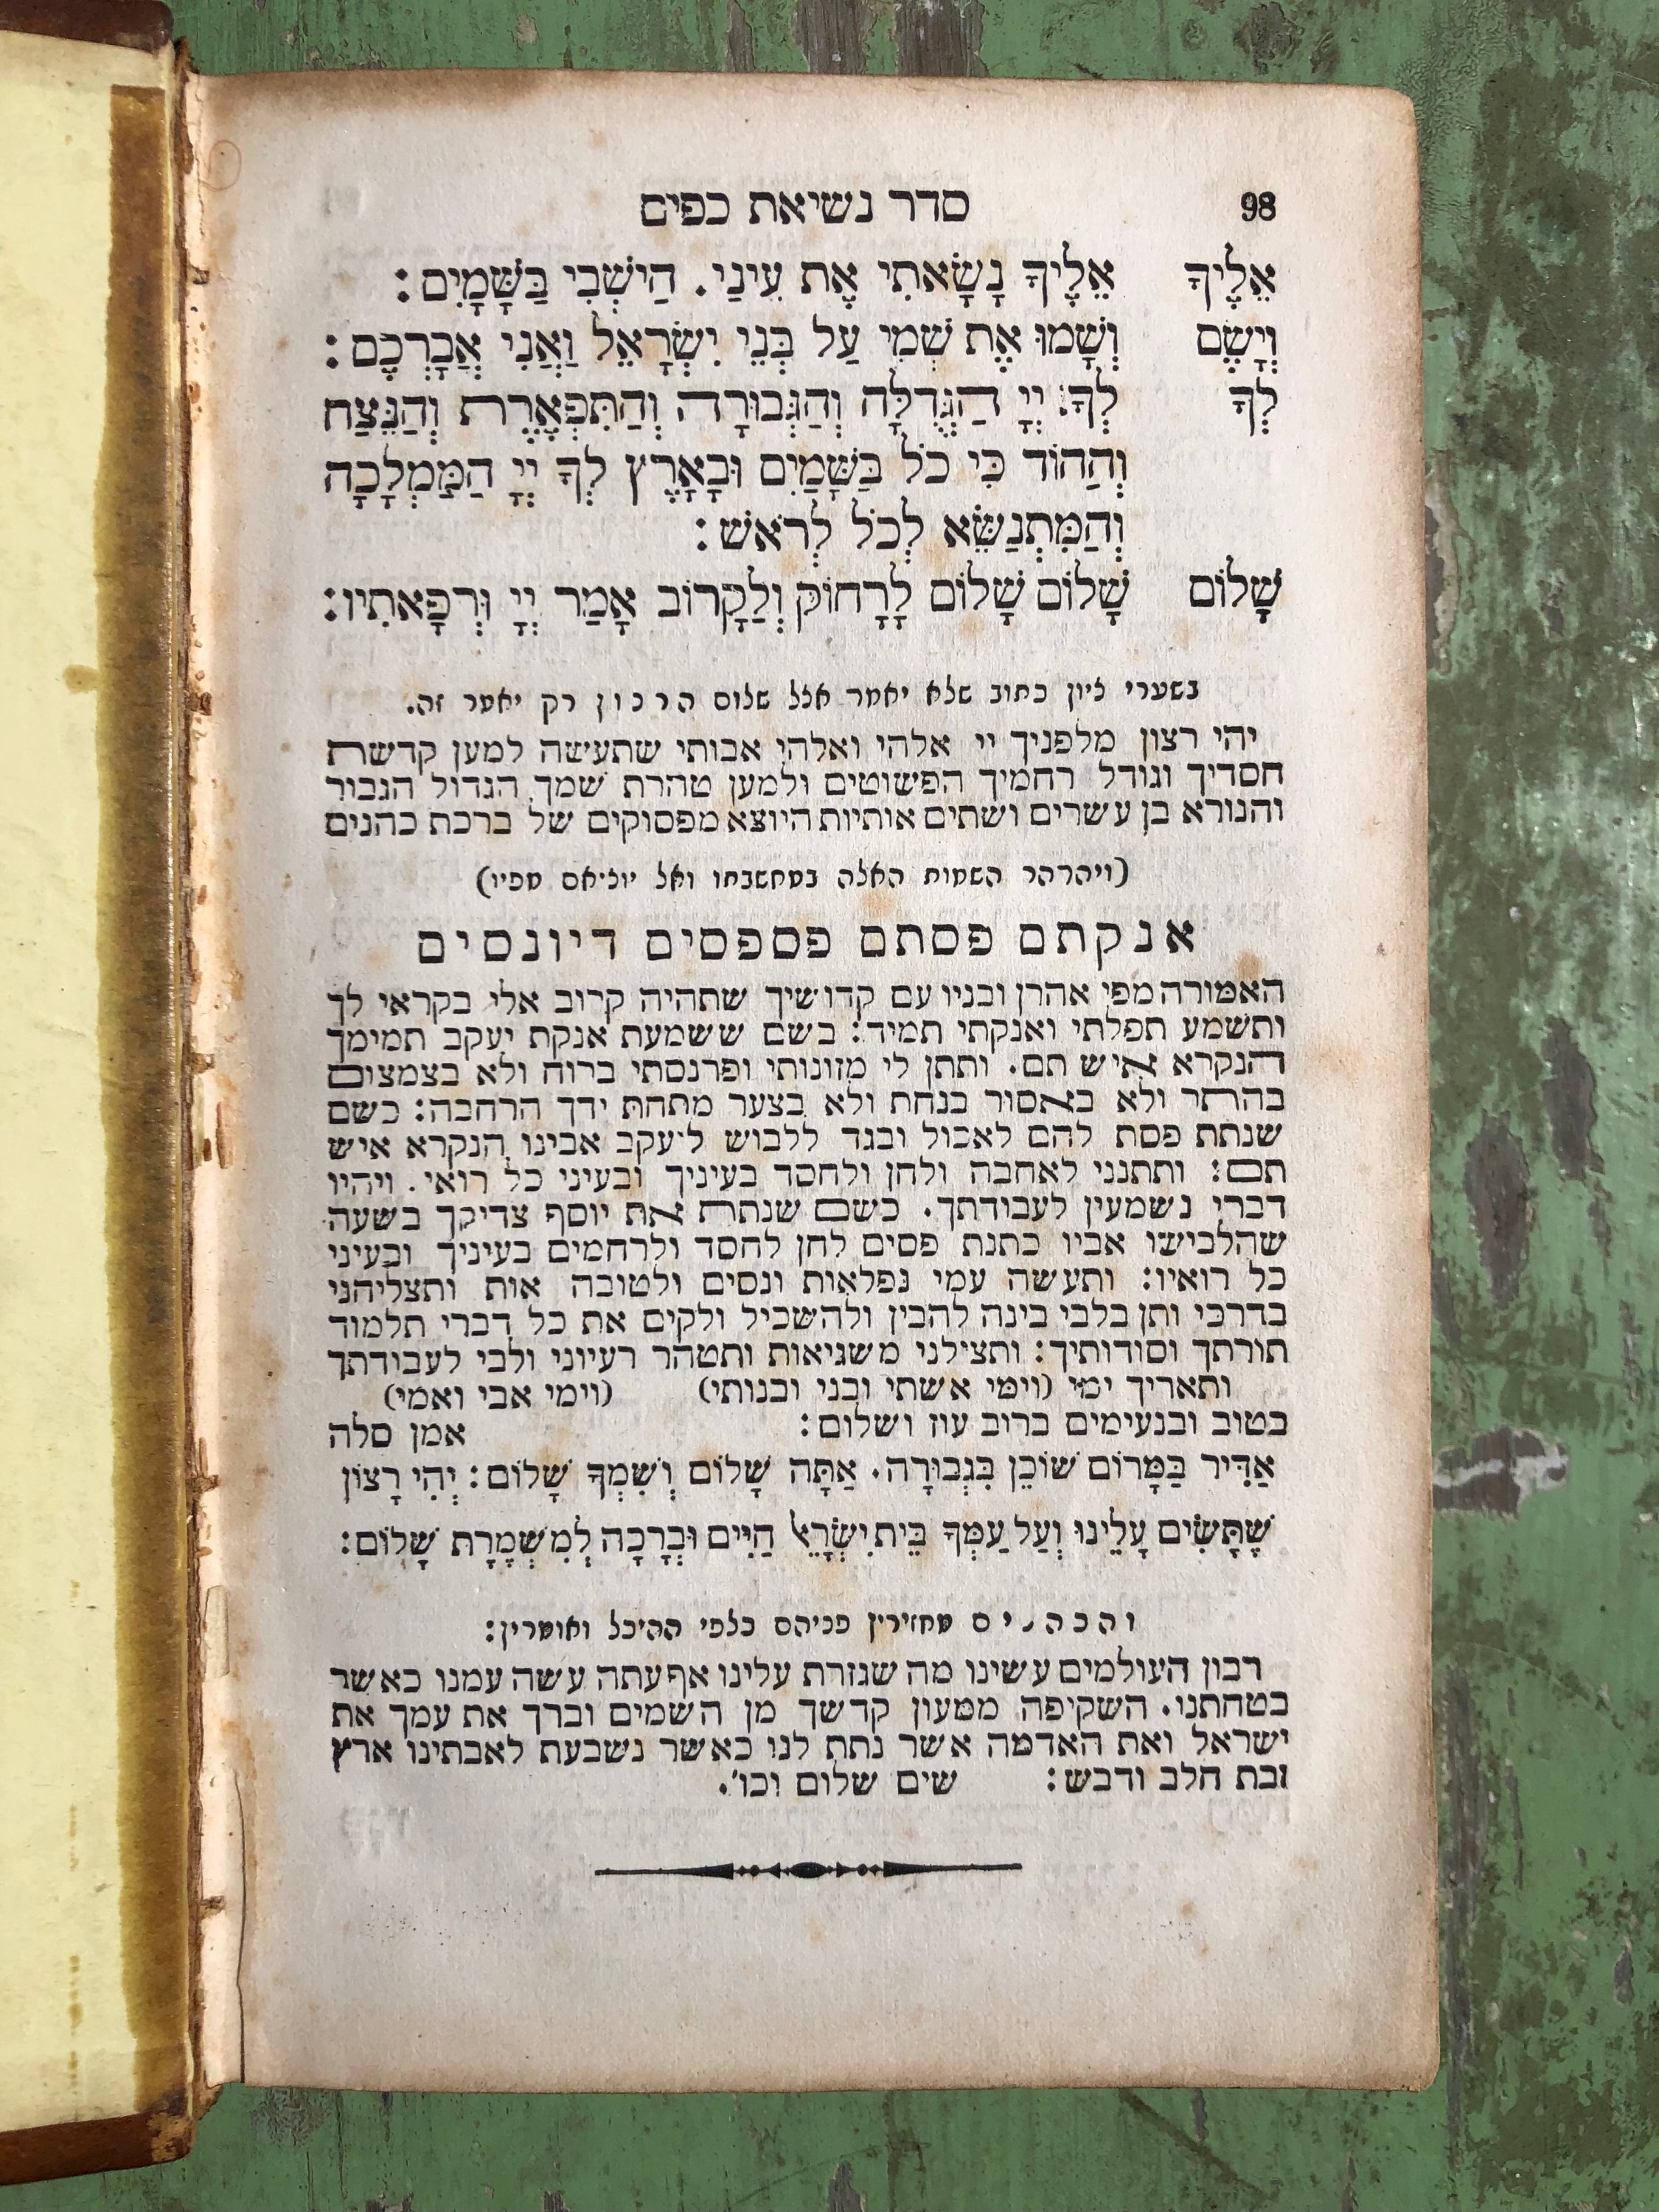 98 סדר נשיאת כפים
אֵלֶיךָ אֵלֶיךָ נָשָׂאתִי אֶת עֵינַי. הַיֹּשְׁבִי בַּשָּׁמָיִם:
וְיָשֵׂם וְשָׂמוּ אֶת שְׁמִי עַל בְּנֵי יִשְׂרָאֵל וַאֲנִי אֲבָרְכֵם:
לְךָ לְךָ יְיָ הַגְּדֻלָּה וְהַגְּבוּרָה וְהַתִּפְאֶרֶת וְהַנֵּצַח
וְהַהוֹד כִּי כֹל בַּשָּׁמַיִם וּבָאָרֶץ לְךָ יְיָ הַמַּמְלָכָה
וְהַמִּתְנַשֵּׂא לְכֹל לְרֹאשׁ:
שָׁלוֹם שָׁלוֹם שָׁלוֹם לָרָחוֹק וְלַקָּרוֹב אָמַר יְיָ וּרְפָאתִיו:
בשערי ציון כתוב שלא יאמר אצל שלום הרבון רק יאמר זה.
יהי רצון מלפניך יי אלהי ואלהי אבותי שתעשה למען קדשת
חסדיך וגודל רחמיך הפשוטים ולמען טהרת שמך הגדול הגבור
והנורא בן עשרים ושתים אותיות היוצא מפסוקים של ברכת כהנים
(ויהרהר השמות האלה במחשבתו ואל יוציאם מפיו)
אנקתם פסתם פספסים דיונסים
האמורה מפי אהרן ובניו עם קדושיך שתהיה קרוב אלי בקראי לך
ותשמע תפלתי ואנקתי תמיד: בשם ששמעת אנקת יעקב תמימך
הנקרא איש תם. ותתן לי מזונותי ופרנסתי ברוח ולא בצמצום
בהתר ולא באסור בנחת ולא בצער מתחת ידך הרחבה: כשם
שנתת פסת להם לאכול ובגד ללבוש ליעקב אבינו הנקרא איש
תם: ותתנני לאחבה ולחן ולחסד בעיניך ובעיני כל רואי. ויהיו
דברי נשמעין לעבודתך. כשם שנתת את יוסף צדיקך בשעה
שהלבישו אביו כתנת פסים לחן לחסד ולרחמים בעיניך ובעיני
כל רואיו: ותעשה עמי נפלאות ונסים ולטובה אות ותצליהני
בדרכי ותן בלבי בינה להבין ולהשכיל ולקים את כל דברי תלמוד
תורתך וסודותיך: ותצילני משגיאות ותטהר רעיוני ולבי לעבודתך
ותאריך ימי (וימי אשתי ובני ובנותי) (וימי אבי ואמי)
בטוב ובנעימים ברוב עוז ושלום: אמן סלה
אַדִּיר בַּמָּרוֹם שׁוֹכֵן בִּגְבוּרָה. אַתָּה שָׁלוֹם וְשִׁמְךָ שָׁלוֹם: יְהִי רָצוֹן
שֶׁתָּשִׂים עָלֵינוּ וְעַל עַמְּךָ בֵּית יִשְׂרָאֵל חַיִּים וּבְרָכָה לְמִשְׁמֶרֶת שָׁלוֹם:
והכהנים מחזירין פניהם כלפי ההיכל ואומרין:
רבון העולמים עשינו מה שגזרת עלינו אף עתה עשה עמנו כאשר
בטחתנו. השקיפה ממעון קדשך מן השמים וברך את עמך את
ישראל ואת האדמה אשר נתת לנו כאשר נשבעת לאבתינו ארץ
זבת חלב ודבש: שים שלום וכו'.